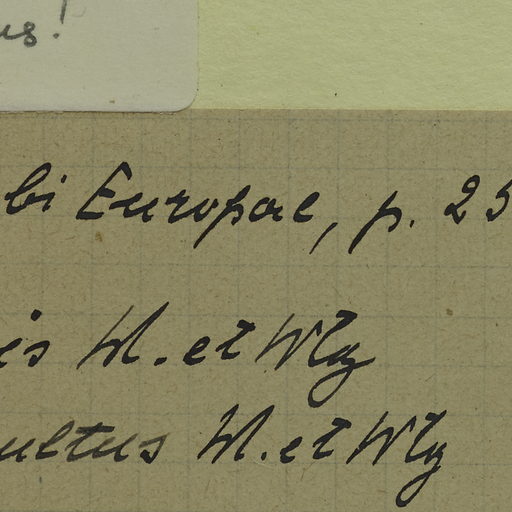 us!
bi Europae, p. 25
is W. et Wtg
ultus W. et Wtg